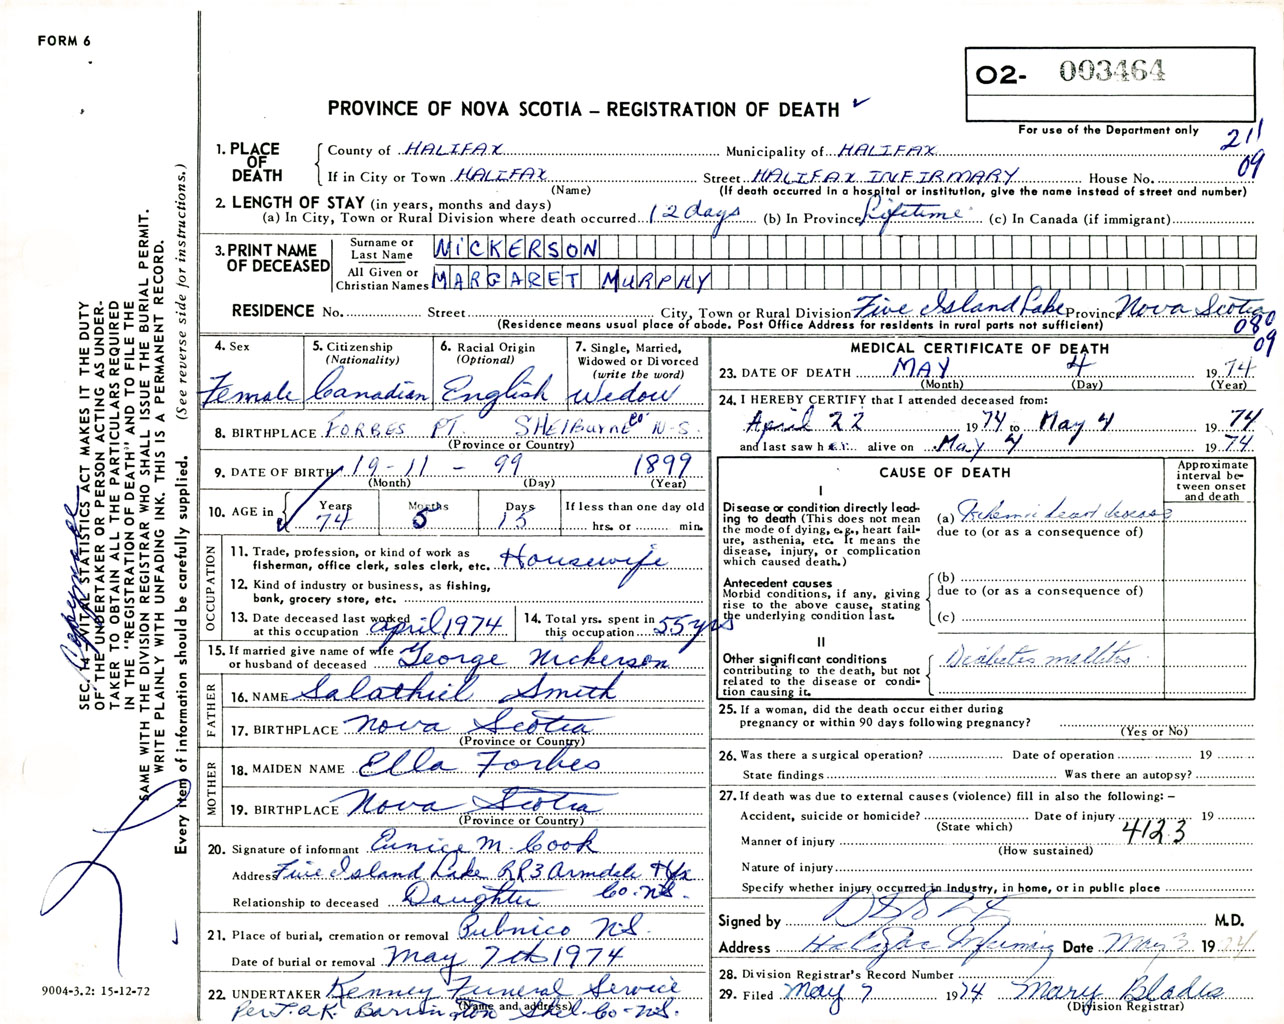 FORM 6
O2- 003464
PROVINCE OF NOVA SCOTIA – REGISTRATION OF DEATH ✓
For use of the Department only
211
09
1. PLACE OF DEATH
County of HALIFAX Municipality of HALIFAX
If in City or Town HALIFAX Street HALIFAX INFIRMARY House No.
(Name) (If death occurred in a hospital or institution, give the name instead of street and number)
2. LENGTH OF STAY (in years, months and days)
(a) In City, Town or Rural Division where death occurred 12 days (b) In Province Lifetime (c) In Canada (if immigrant)
3. PRINT NAME OF DECEASED
Surname or Last Name NICKERSON
All Given or Christian Names MARGARET MURPHY
RESIDENCE No. Street City, Town or Rural Division Five Island Lake Province Nova Scotia
(Residence means usual place of abode. Post Office Address for residents in rural parts not sufficient)
080
09
4. Sex Female
5. Citizenship (Nationality) Canadian
6. Racial Origin (Optional) English
7. Single, Married, Widowed or Divorced (write the word) Widow
8. BIRTHPLACE FORBES PT. SHELBURNE Co N-S.
(Province or Country)
9. DATE OF BIRTH 19-11-99 1899
(Month) (Day) (Year)
10. AGE in Years 74 Months 5 Days 15 If less than one day old
hrs. or min.
OCCUPATION
11. Trade, profession, or kind of work as fisherman, office clerk, sales clerk, etc. Housewife
12. Kind of industry or business, as fishing, bank, grocery store, etc.
13. Date deceased last worked at this occupation April 1974
14. Total yrs. spent in this occupation 55 yrs
15. If married give name of wife or husband of deceased George Nickerson
FATHER
16. NAME Salathiel Smith
17. BIRTHPLACE Nova Scotia
(Province or Country)
MOTHER
18. MAIDEN NAME Ella Forbes
19. BIRTHPLACE Nova Scotia
(Province or Country)
20. Signature of informant Eunice M. Cook
Address Five Island Lake RR3 Armdale Hfx Co. N.S.
Relationship to deceased Daughter
21. Place of burial, cremation or removal Pubnico N.S.
Date of burial or removal May 7th 1974
22. UNDERTAKER Kenney Funeral Service
(Name and address)
Per T.A.K. Barrington Shel. Co- N.S.
MEDICAL CERTIFICATE OF DEATH
23. DATE OF DEATH MAY 4 1974
(Month) (Day) (Year)
24. I HEREBY CERTIFY that I attended deceased from:
April 22 1974 to May 4 1974
and last saw her alive on May 4 1974
CAUSE OF DEATH
Approximate interval between onset and death
I
Disease or condition directly leading to death (This does not mean the mode of dying, e.g., heart failure, asthenia, etc. It means the disease, injury, or complication which caused death.)
(a) Ischemic heart disease
due to (or as a consequence of)
Antecedent causes
Morbid conditions, if any, giving rise to the above cause, stating the underlying condition last.
(b)
due to (or as a consequence of)
(c)
II
Other significant conditions contributing to the death, but not related to the disease or condition causing it.
Diabetes mellitus
25. If a woman, did the death occur either during pregnancy or within 90 days following pregnancy?
(Yes or No)
26. Was there a surgical operation? Date of operation 19
State findings Was there an autopsy?
27. If death was due to external causes (violence) fill in also the following: –
Accident, suicide or homicide? Date of injury 19
(State which)
Manner of injury 4123
(How sustained)
Nature of injury
Specify whether injury occurred in Industry, in home, or in public place
Signed by M.D.
Address Halifax Infirmary Date May 3 1974
28. Division Registrar's Record Number
29. Filed May 7 1974 Mary Blades
(Division Registrar)
SEC. 14—VITAL STATISTICS ACT MAKES IT THE DUTY
OF THE UNDERTAKER OR PERSON ACTING AS UNDER-
TAKER TO OBTAIN ALL THE PARTICULARS REQUIRED
IN THE "REGISTRATION OF DEATH" AND TO FILE THE
SAME WITH THE DIVISION REGISTRAR WHO SHALL ISSUE THE BURIAL PERMIT.
WRITE PLAINLY WITH UNFADING INK. THIS IS A PERMANENT RECORD.
Every item of information should be carefully supplied. (See reverse side for instructions.)
9004-3.2: 15-12-72